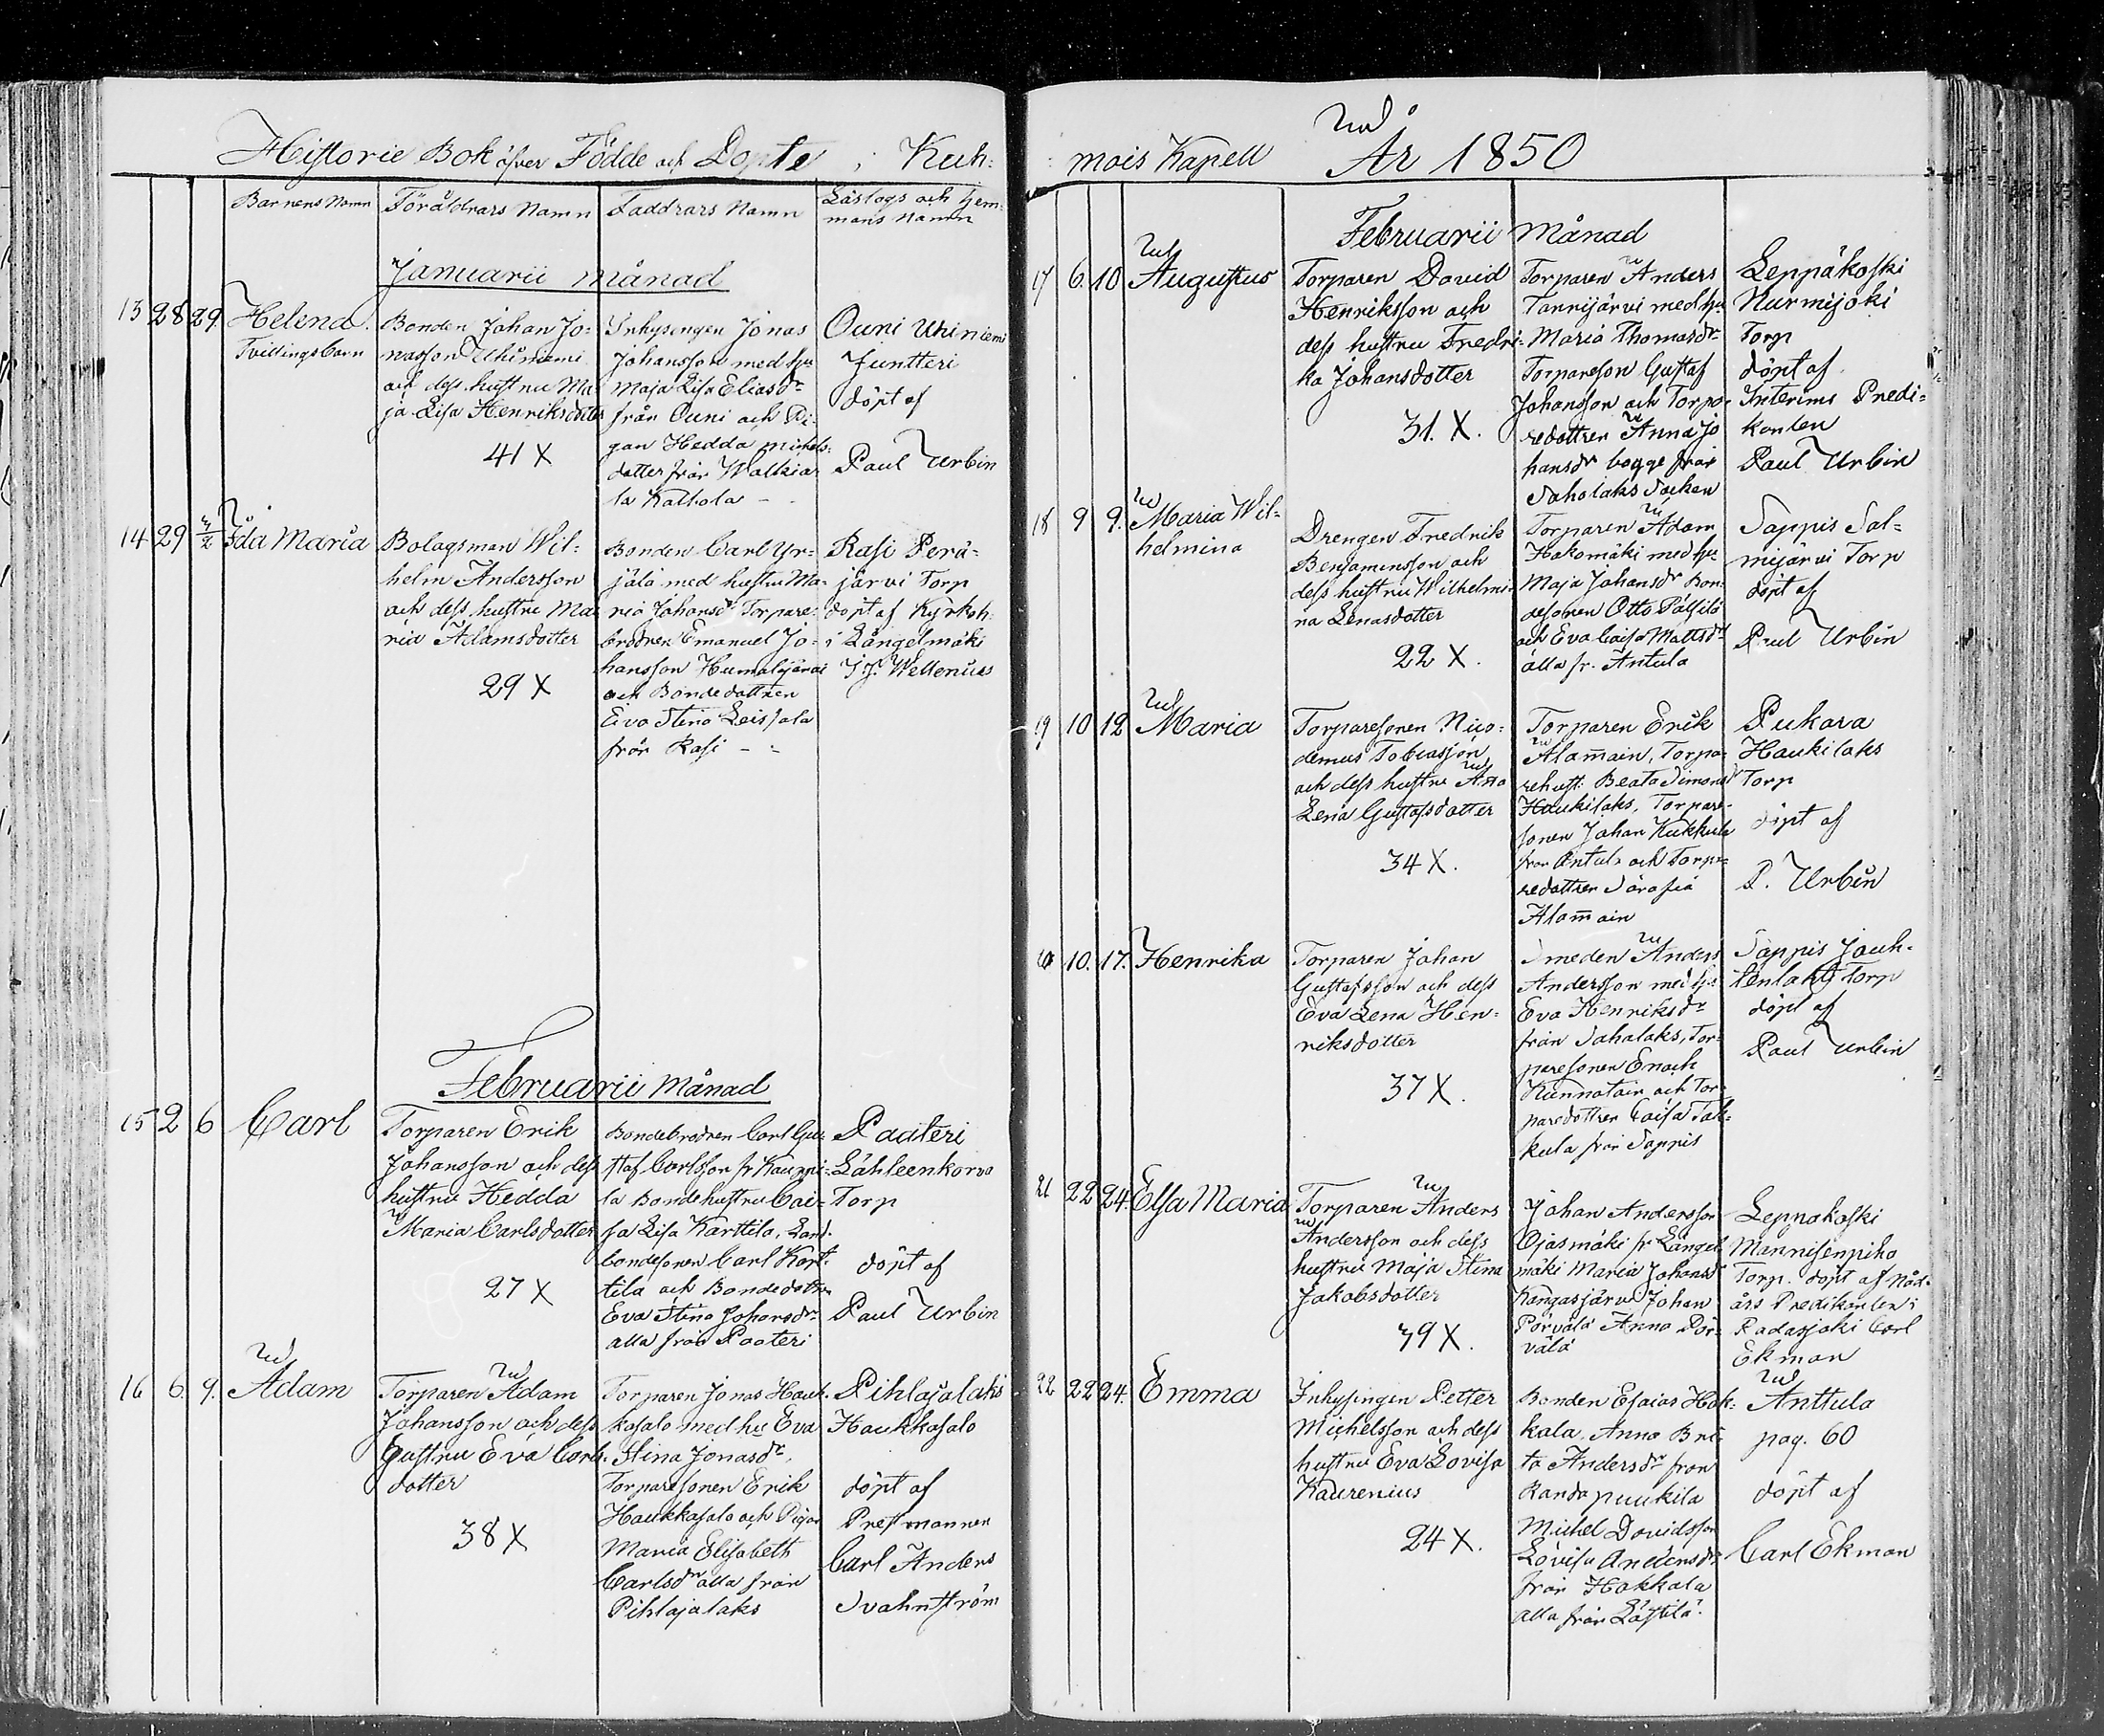 Historie Bok öfver Födde och Döpte i Kuh-
mois Kapell År 1850
Barnens Namn Föräldrars Namn Faddrars Namn Laslags och Hem-
mans Namn
Januarii månad
13 28 29. Helena.
Tvillingsbarn
Bonden Johan Jo-
nasson Uhiniemi
och dess hustru Ma-
ja Lisa Henriksdotter
41 X
Inhysingen Jonas
Johansson med hu
Maja Lisa Eliasdr
från Ouni och Pi-
gan Hedda Michels-
dotter från Walkia-
la Kathola -
Ouni Uhiniemi
Juntteri
döpt af
Paul Urbin
14 29 3/2 Ida Maria
Bolagsman Wil-
helm Andersson
och dess hustru Ma-
ria Adamsdotter
29 X
Bonden Carl Yr-
jälä med hustru Ma-
ria Johansdr Torpare-
brodren Emanuel Jo-
hansson Humalajärvi
och Bondedottren
Eva Stina Leissala
från Rasi - -
Rasi Perä-
järvi Torp
döpt af Kyrkoh.
i Längelmäki
Wellenius
Februarii månad
15 2 6 Carl
Torparen Erik
Johansson och dess
hustru Hedda
Maria Carlsdotter
27 X
Bondebrodren Carl Gu-
staf Carlsson fr Kauppi-
la Bondehustru Cai-
sa Lisa Karttila, Land-
bondesonen Carl Kart-
tila och Bondedottren
Eva Stina Johansdr
alla från Paateri
Paateri
Lähteenkorva
Torp
döpt af
Paul Urbin
16 6 9. Adam
Torparen Adam
Johansson och dess
hustru Eva Carls-
dotter
38 X
Torparen Jonas Hauk-
kasalo med hu Eva
Stina Jonasdr,
Torparesonen Erik
Haukkasalo och Pigan
Maria Elisabeth
Carlsdr alla från
Pihlajalaks
Pihlajalaks
Haukkasalo
döpt af
Prestmannen
Carl Anders
Svahnström
Februarii månad
17 6. 10 Augustus
Torparen David
Henriksson och
dess hustru Fredri-
ka Johansdotter
31. X.
Torparen Anders
Tannijärvi med hu
Maria Thomasdr
Torparesson Gustaf
Johansson och Torpa-
redottren Anna Jo
hansdr bägge från
Saholaks Socken
Leppäkoski
Nurmijoki
Torp
döpt af
Interims Predi-
kanten
Paul Urbin
18 9 9. Maria Wil-
helmina
Drengen Fredrik
Benjaminsson och
dess hustru Wilhelmi-
na Lenasdotter
22 X.
Torparen Adam
Hakomäki med hu
Maja Johansdr Bon-
desonen Otto Pälsilä
och Eva Caisa Mattsdr
alla fr. Antula
Sappis Sal-
mijärvi Torp
döpt af
Paul Urbin
19 10 12 Maria
Torparesonen Nico-
demus Tobiasson
och dess hustru Anna
Lena Gustafsdotter
34 X.
Torparen Erik
Alamain, Torpa-
rehust. Beata Simonsd
Haukilaks, Torpare-
sonen Johan Kukkula
från Antula och Torpa-
redottren Sarafia
Alamain
Pukara
Haukilaks
Torp
döpt af
P. Urbin
10. 17. Henrika
Torparen Johan
Gustafsson och dess
Eva Lena Hen-
riksdotter
37 X.
Smeden Anders
Andersson med hu
Eva Henriksdr
från Sahalaks, Tor-
paresonen Enoch
och Tor-
paredottren Caisa Tak-
kula från Sappis
Sappis Jouh-
tenlaht Torp
döpt af
Paul Urbin
21 22 24. Elsa Maria
Torparen Anders
Andersson och dess
hustru Maja Stina
Jakobsdotter
39 X.
Johan Andersson
Ojasmäki fr Längel-
mäki Maria Johansd
Kangasjärvi Johan
Pörvälä Anna Pör-
välä
Leppokoski
Mannisenpiha
Torp. döpt af Nåd-
års Predikanten i
Padasjoki Carl
Ekman
22 22 24. Emma
Inhysingen Petter
Michelsson och dess
hustru Eva Lovisa
Kaurenius
24 X.
Bonden Esaias Hak-
kala, Anna Bri-
ta Andersdr från
Randa puukila
Michel Davidsson
Lovisa Andersdr
från Hakkala
alla från Lästilä.
Anttula
pag. 60
döpt af
Carl Ekman